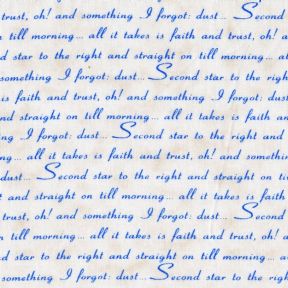 trust, oh! and something I forgot: dust... Second
on till morning... all it takes is faith and trust, oh!
star to the right and straight on till morning... all
something I forgot: dust... Second star to the right
is faith and trust, oh! and something I forgot: dust
and straight on till morning... all it takes is faith
ng I forgot: dust... Second star to the right and
till morning... all it takes is faith and trust, oh! and
dust... Second star to the right and straight on till
t and straight on till morning... all it takes is faith
trust, oh! and something I forgot: dust... Second
on till morning... all it takes is faith and trust, oh! a
nd star to the right and straight on till morning... all
something I forgot: dust... Second star to the right